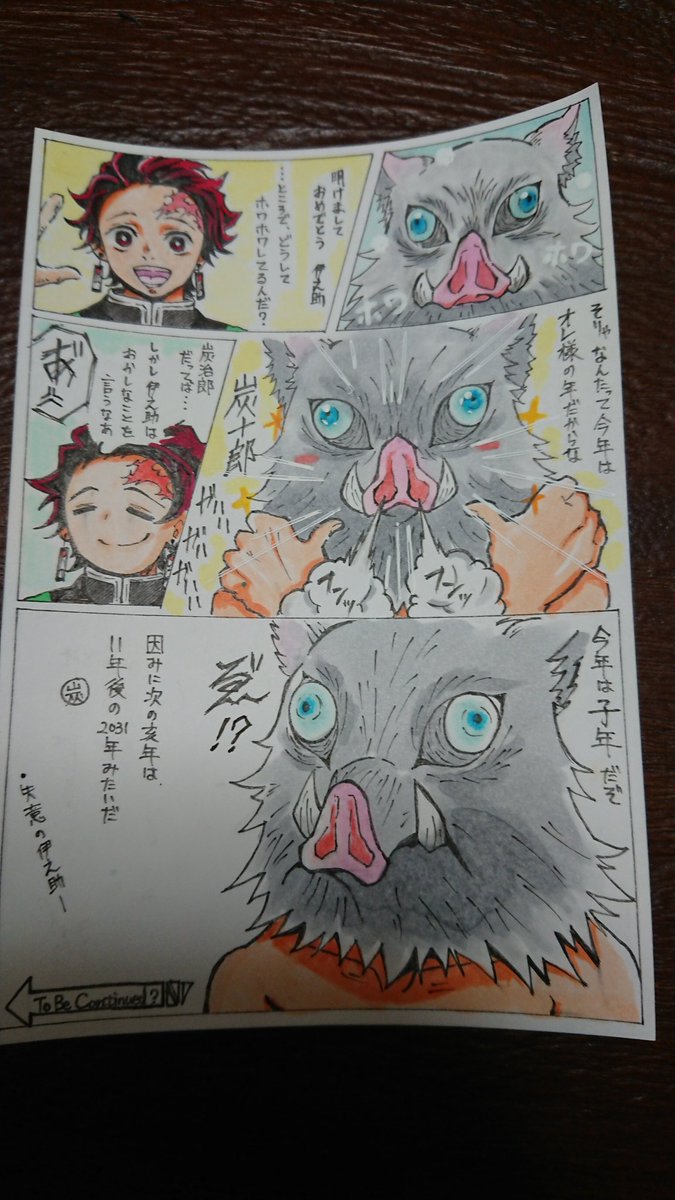 ホワ
ホワ
明けまして
おめでとう 伊之助
…ところで、どうして
ホワホワしてるんだ?
そりゃなんたって今年は
オレ様の年だからな
炭十郎
フンッ
フンッ
炭治郎
だってば…
しかし伊之助は
おかしなことを
言うなあ
今年は子年だぞ
!?
因みに次の亥年は、
11年後の2031
年みたいだ
炭
・失意の伊之助ー
To Be Continued?